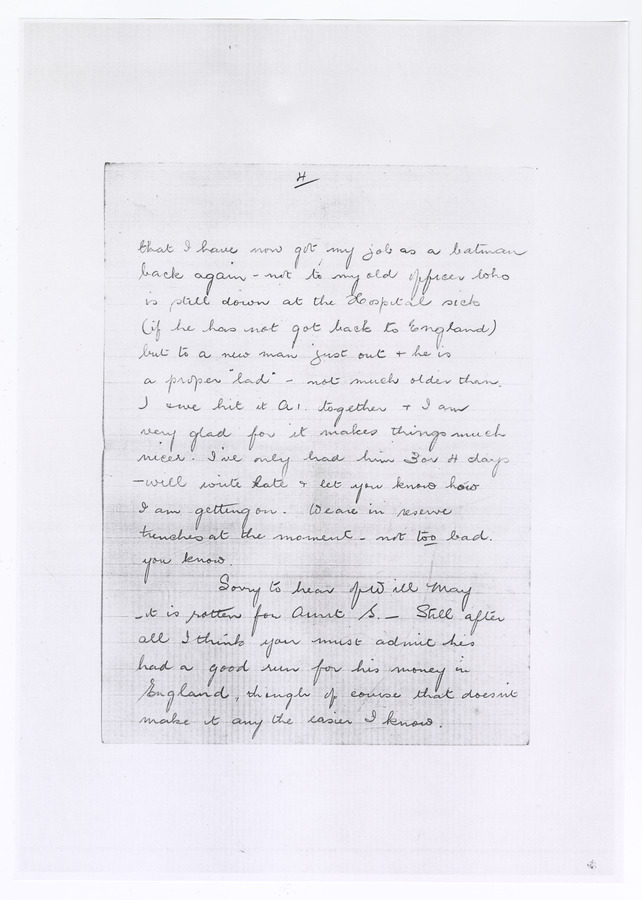 4
that I have now got my job as a batman
back again - not to my old officer who
is still down at the Hospital sick
(if he has not got back to England)
but to a new man just out + he is
a proper "lad" - not much older than
I & we hit it A1. together + I am
very glad for it makes things much
nicer. I've only had him 3 or 4 days
- will write late & let you know how
I am getting on. We are in reserve
trenches at the moment - not too bad.
you know.
Sorry to hear of Will May
- it is rotten for Aunt S. - Still after
all I think you must admit his
had a good run for his money in
England, though of course that doesn't
make it any the easier I know.